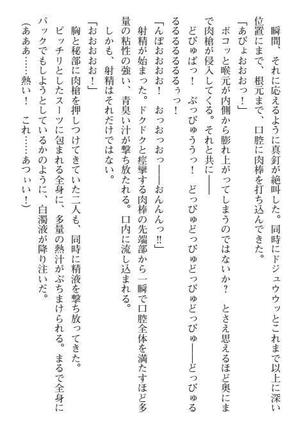 瞬間、それに応えるように真釘が絶叫した。同時にドジュウウッとこれまで以上に深い
位置にまで、根元まで、口腔に肉棒を打ち込んできた。
「あぴょおおおおっ!」
ボコッと喉元が内側から膨れ上がってしまうのではないか? とさえ思えるほど奥にま
で肉槍が侵入してくる。それと共に――
どびゅばっ! ぶっびゅううっ! どっびゅどっびゅどっびゅどっびゅ――どっびゅる
るるるるるるぅっ!
「んぼおおおおっ! おっおっ――おんんんっ‼」
射精が始まった。ドクドクと痙攣する肉棒の先端部から一瞬で口腔全体を満たすほど多
量の粘性の強い、青臭い汁が撃ち放たれる。口内に流し込まれる。
しかも、射精はそれだけではない。
「おおおおお!」
胸と秘部に肉槍を押しつけてきていた二人も、同時に精液を撃ち放ってきた。
ピッチリとしたスーツに包まれる全身に、多量の熱汁がぶちまけられる。まるで全身に
パックでもしようとしているかのように、白濁液が降り注いだ。
(あああ……熱い! これ……あつぃい!)